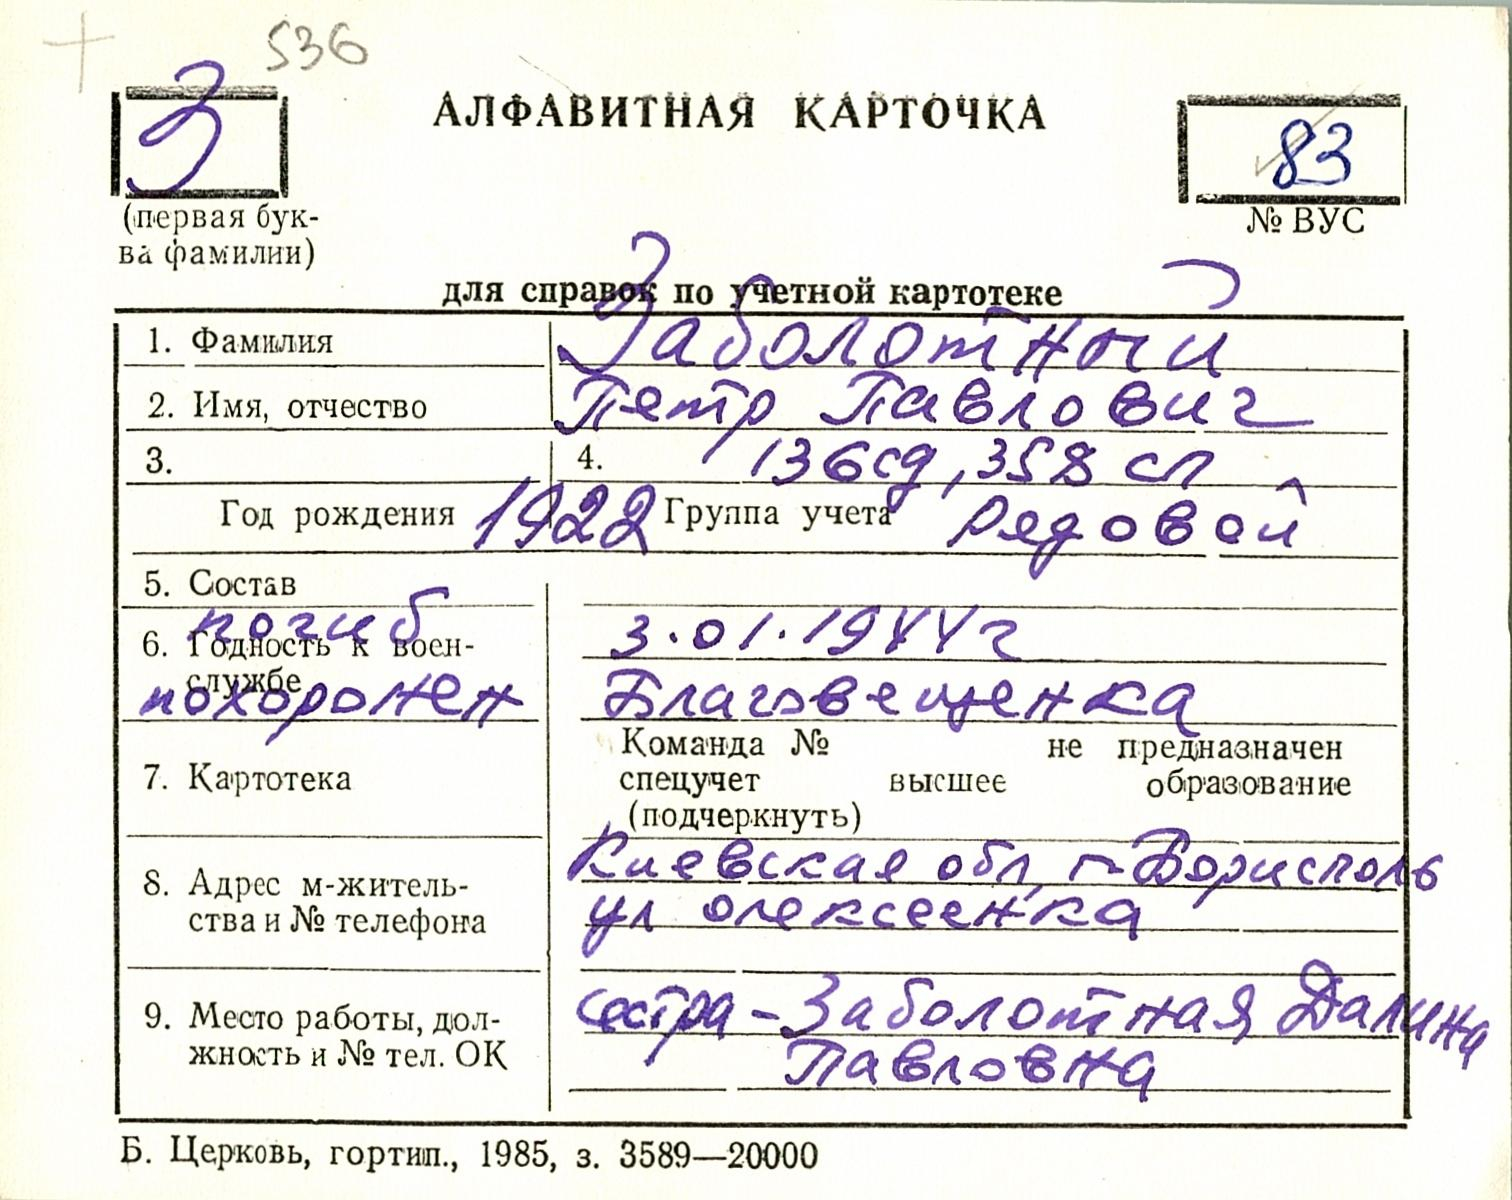 536
З
АЛФАВИТНАЯ КАРТОЧКА
83
(первая бук-
ва фамилии)
№ ВУС
для справок по учетной картотеке
1. Фамилия Заболотный
2. Имя, отчество Петр Павлович
3. 4. 136сд, 358 сп
Год рождения 1922 Группа учета Рядовой
5. Состав
погиб 3.01.1944г
6. Годность к воен-
службе
похоронен Благовещенка
Команда № не предназначен
7. Картотека спецучет высшее образование
(подчеркнуть)
Киевская обл, г-Борисполь
8. Адрес м-житель-
ства и № телефона ул олексеенка
9. Место работы, дол-
жность и № тел. ОК
сестра - Заболотная Далина
Павловна
Б. Церковь, гортип., 1985, з. 3589—20000